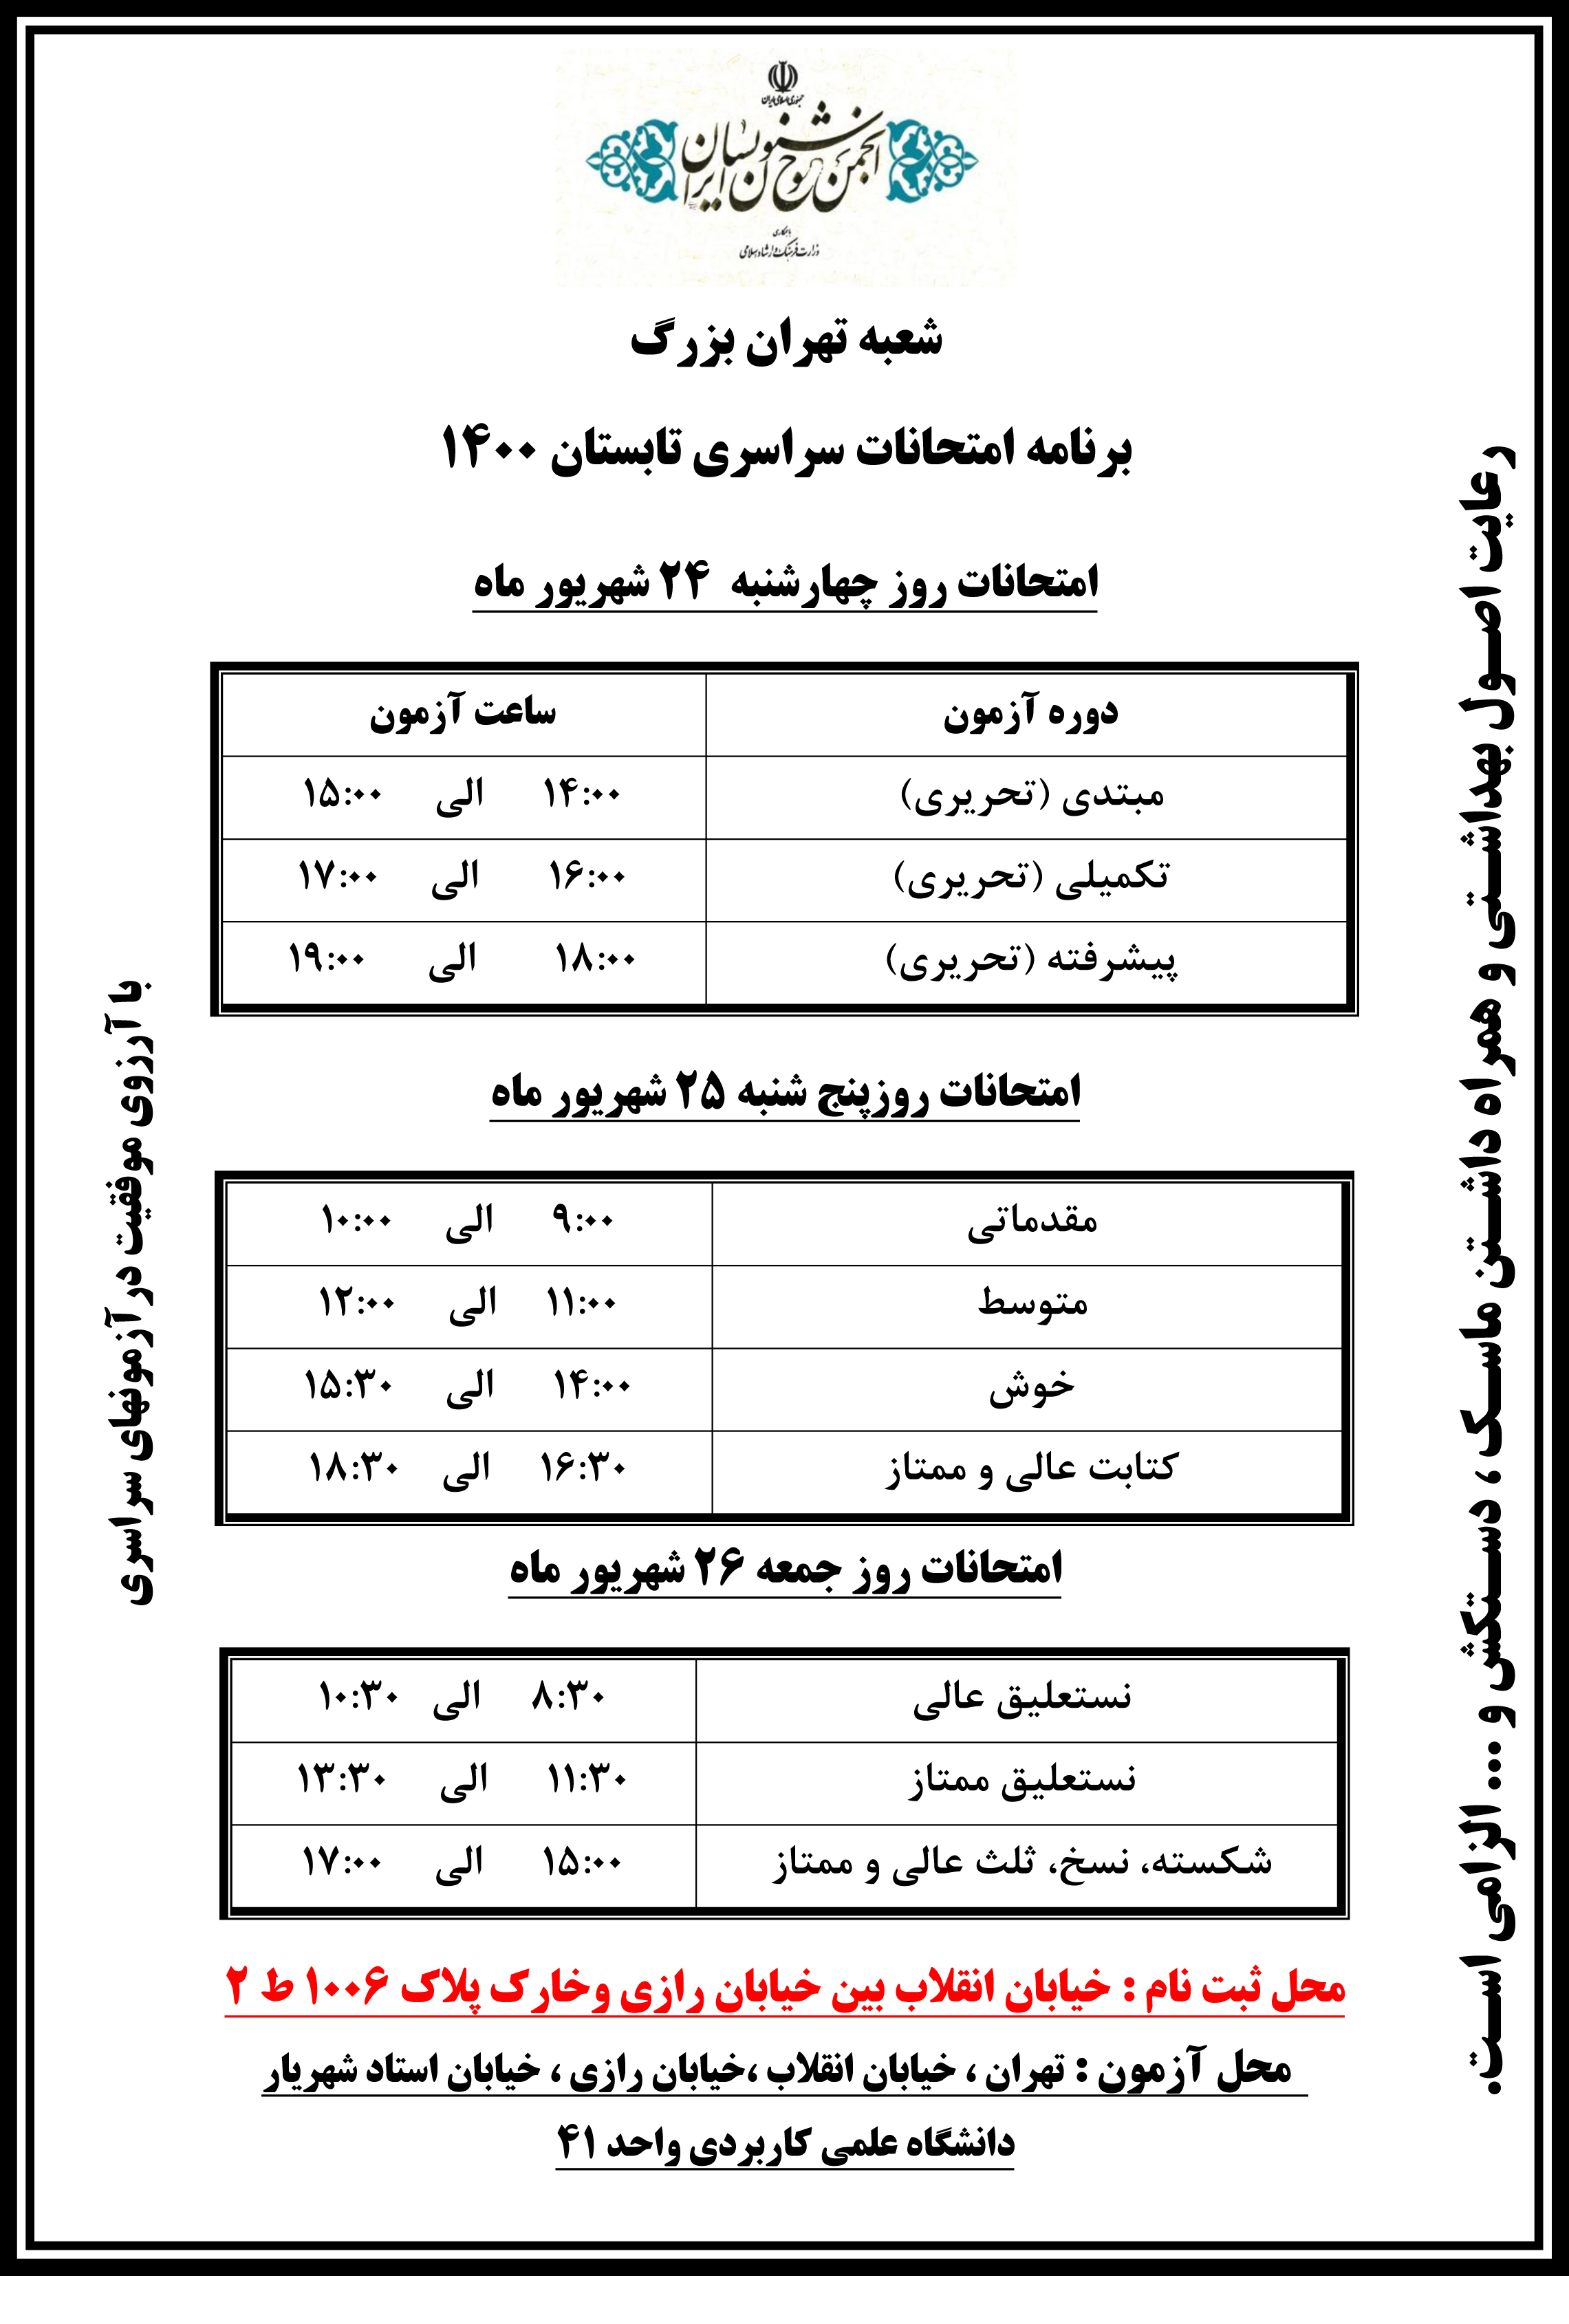 جمهوری اسلامی ایران
انجمن خوشنویسان ایران
با همکاری
وزارت فرهنگ و ارشاد اسلامی
شعبه تهران بزرگ
برنامه امتحانات سراسری تابستان ۱۴۰۰
امتحانات روز چهارشنبه ۲۴ شهریور ماه
دوره آزمون ساعت آزمون
مبتدی (تحریری) ۱۴:۰۰ الی ۱۵:۰۰
تکمیلی (تحریری) ۱۶:۰۰ الی ۱۷:۰۰
پیشرفته (تحریری) ۱۸:۰۰ الی ۱۹:۰۰
امتحانات روزپنج شنبه ۲۵ شهریور ماه
مقدماتی ۹:۰۰ الی ۱۰:۰۰
متوسط ۱۱:۰۰ الی ۱۲:۰۰
خوش ۱۴:۰۰ الی ۱۵:۳۰
کتابت عالی و ممتاز ۱۶:۳۰ الی ۱۸:۳۰
امتحانات روز جمعه ۲۶ شهریور ماه
نستعلیق عالی ۸:۳۰ الی ۱۰:۳۰
نستعلیق ممتاز ۱۱:۳۰ الی ۱۳:۳۰
شکسته، نسخ، ثلث عالی و ممتاز ۱۵:۰۰ الی ۱۷:۰۰
محل ثبت نام : خیابان انقلاب بین خیابان رازی وخارک پلاک ۱۰۰۶ ط ۲
محل آزمون : تهران ، خیابان انقلاب ،خیابان رازی ، خیابان استاد شهریار
دانشگاه علمی کاربردی واحد ۴۱
رعایت اصول بهداشتی و همراه داشتن ماسک ، دستکش و ... الزامی است.
با آرزوی موفقیت در آزمونهای سراسری